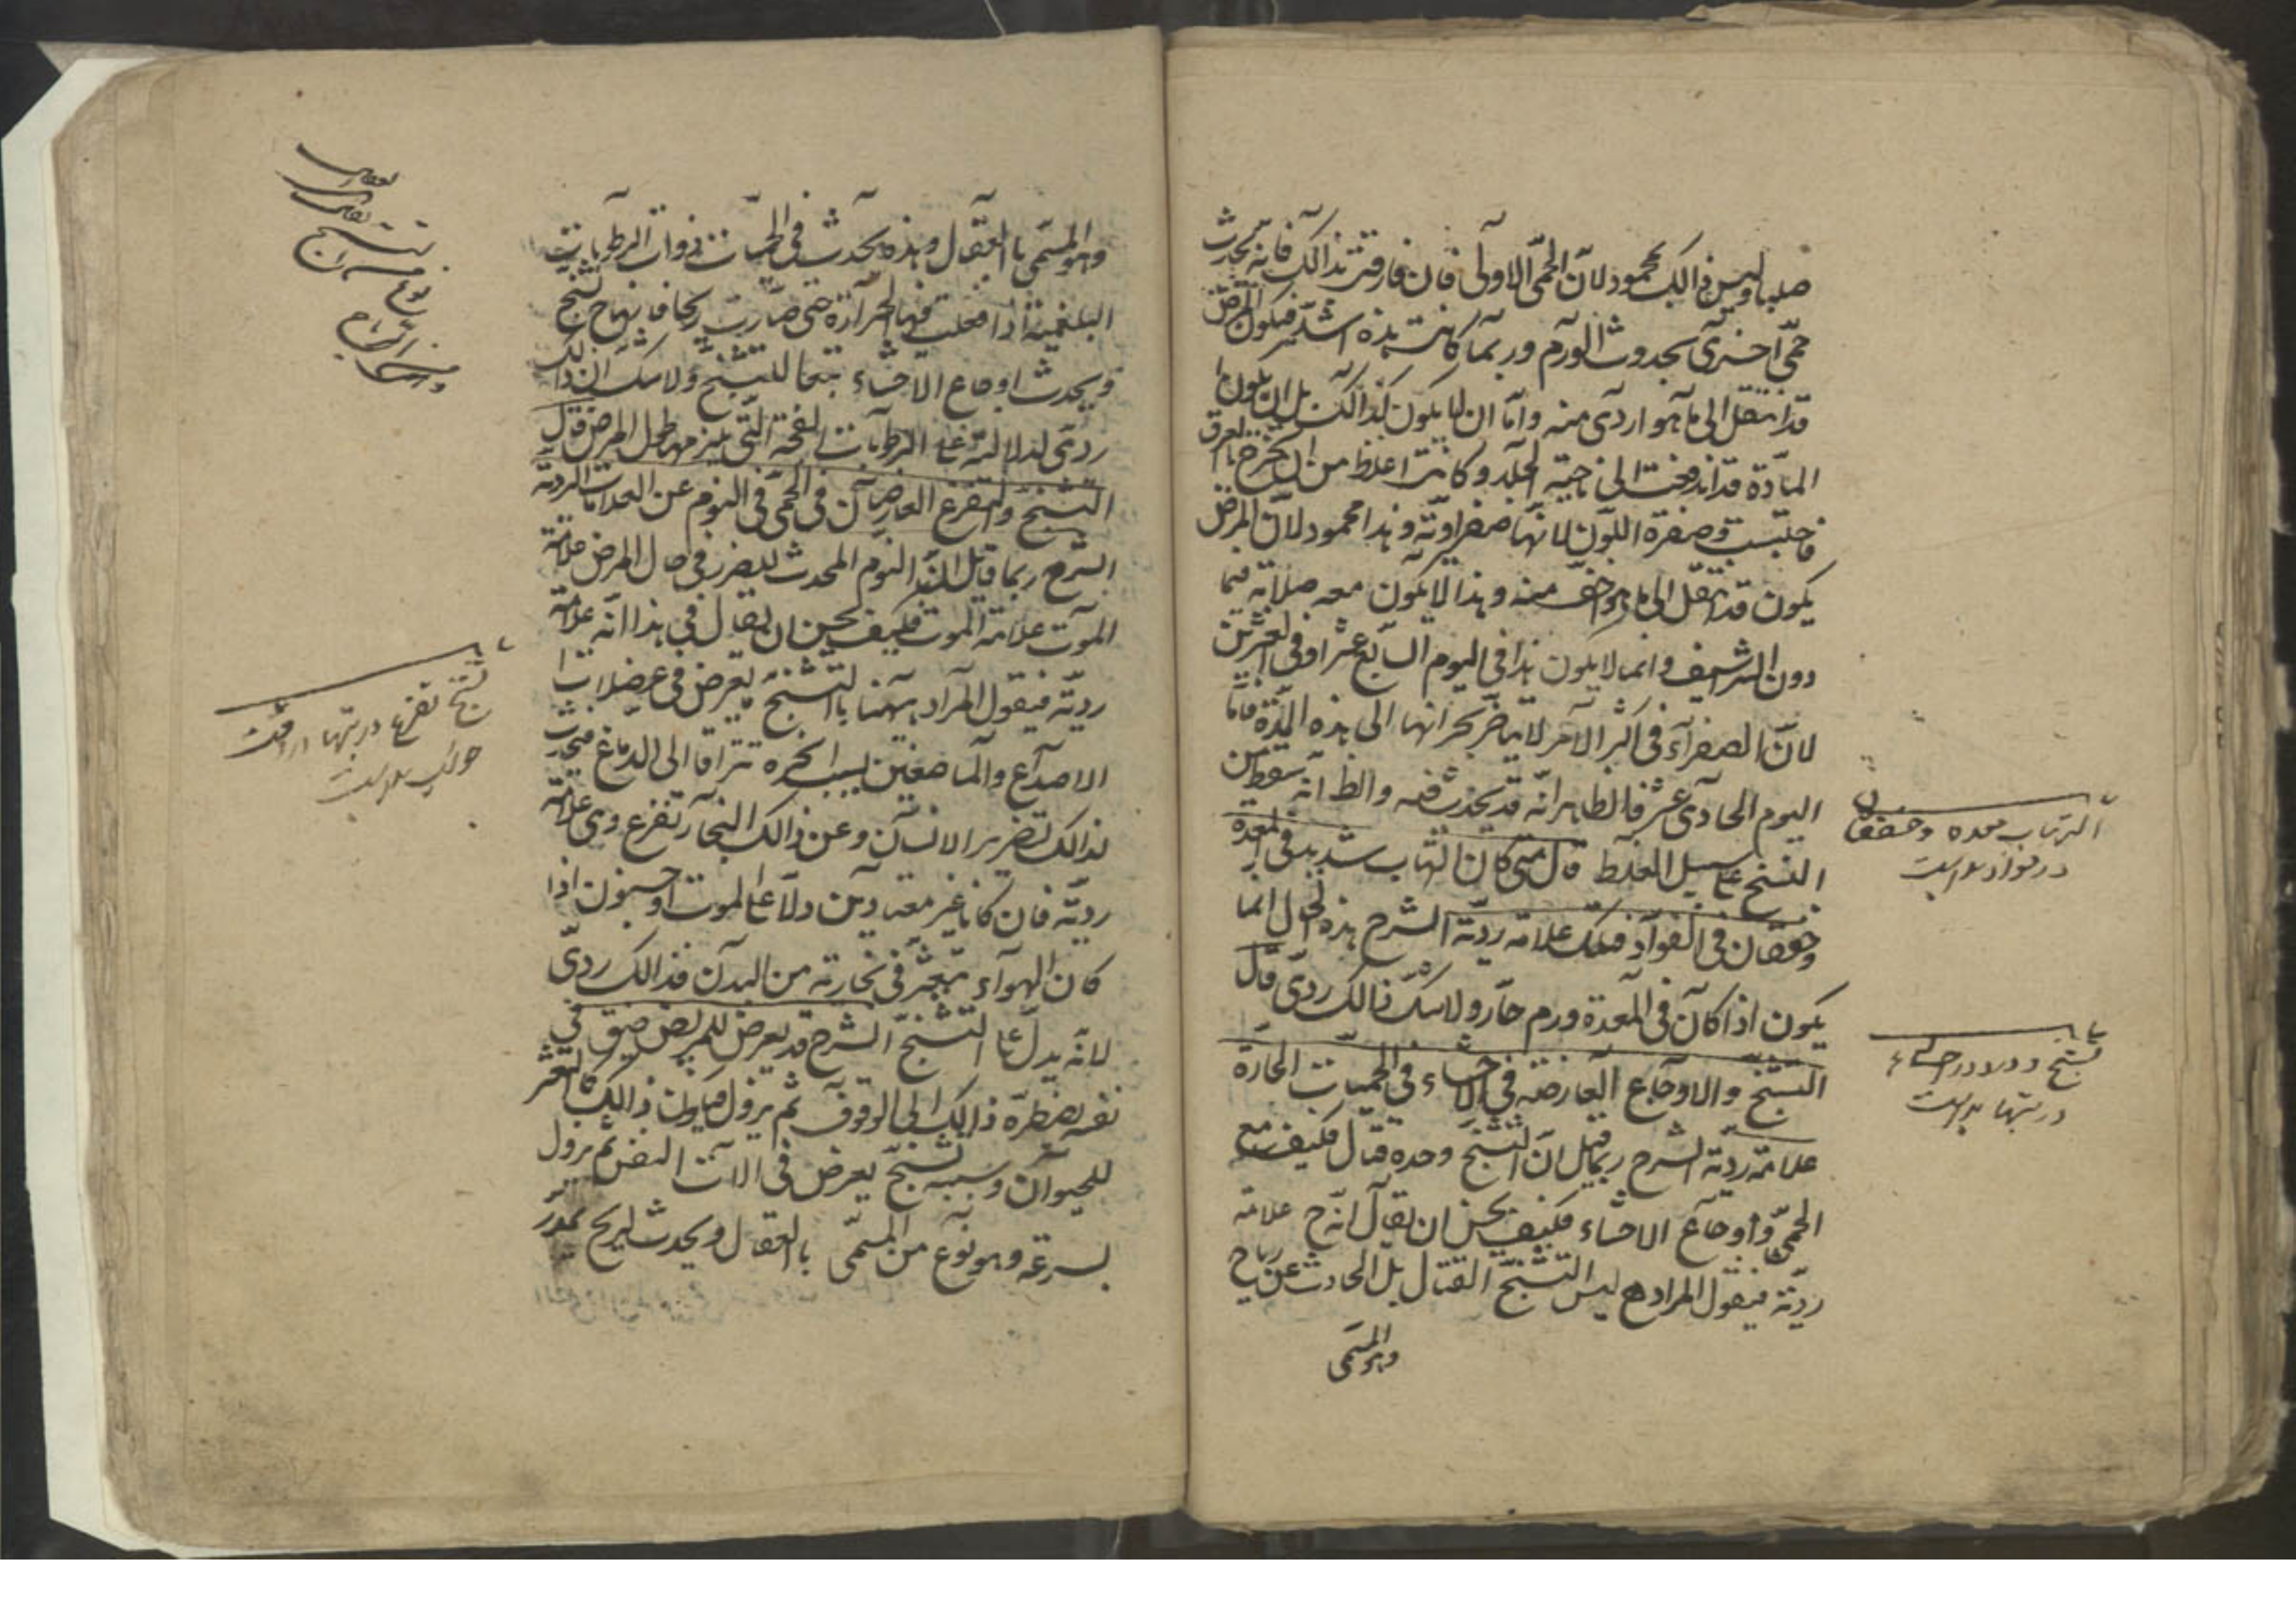 صلبا وليس ذالك بمحمود لانّ الحمّى الاولى فان فارقت بذالك فانه يحدث
حمّى اخرى بحدوث الورم وربما كانت هذه اشدّ فيكون المرض
قد انتقل الى ما هو اردى منه وامّا ان لا يكون كذالك بل ان يكون
المادّة قد اندفعت الى ناحية الجلد وكانت اغلظ من ان يخرج بالعرق
فاحتبست وصفرة اللون لانها صفراويّة وهذا محمود لانّ المرض
يكون قد انتقل الى ما هو اخفّ منه وهذا لا يكون معه صلابة فيما
دون الشراسيف وانما لا يكون هذا فى اليوم السابع عشر او فى العشرين
لانّ الصفرآء فى اكثر الامر لا يتاخّر بحرانها الى هذه المدّة فامّا
اليوم الحادى عشر فالظاهر انّه قد يحدث فيه والظ انّه سقط من
النسخ على سبيل الغلط قال متى كان التهاب شديد فى المعدة
وخفقان فى الفوآد فتلك علامة رديّة الشرح هذه الحال انما
يكون اذا كان فى المعدة ورم حارّ ولا شكّ ذالك ردىّ قال
التشنّج والاوجاع العارضة فى الاحشاء فى الحميّات الحارّة
علامة رديّة الشرح ربما قيل انّ التشنّج وحده قتال فكيف مع
الحمّى واوجاع الاحشاء فكيف يحسن ان يقال انّه ح علامة
رديّة فيقول المراد هـ ليس التشنّج القتال بل الحادث عن رياح
وهو المسمّى
التهاب معده وخفقان
در فواد بد است
تشنج ودرد در احشاء
در تبها بد است
وهو المسمّى بالعقال وهذه يحدث فى الحميّات ذوات الرطوبات
البلغمية اذا فعلت فيها الحرارة حتى صارت رياحا فانها ح تشنج
ويحدث اوجاع الاحشاء تبعا للتشنج ولا شك ان ذالك
ردى لدلالته على الرطوبات الفجة التى يلزمها طول المرض قال
التشنّج والتفزع العارضان فى الحمّى فى النوم من العلامات الرديّة
الشرح ربما قيل انّ النوم المحدث للضرر فى حال المرض علامة
الموت علامة الموت فكيف يحسن ان يقال فى هذا انّه علامة
رديّة فيقول المراد ههنا بالتشنّج يعرض فى عضلات
الاصداغ والماضغين بسبب ابخرة تتراقا الى الدماغ فيحدث
لذالك تضرير الاسنان وعن ذالك البخار تفزع وهى علامة
رديّة فان كانا غير معتادين دلّا على الموت او جنون اذا
كان الهوآء يتعثّر فى مجاريه من البدن فذالك ردىّ
لانّه يدلّ على التشنّج الشرح قد يعرض للمريض ضيق فى
نفسه يضطرّه ذالك الى الوقوف ثم يزول فيكون ذالك كالتعثر
للحيوان وسببه تشنّج يعرض فى الات النفس ثم يزول
بسرعة وهو نوع من المسمّى بالعقال ويحدث لريح
تشنج تفزع در تبها در وقت
خواب بد است